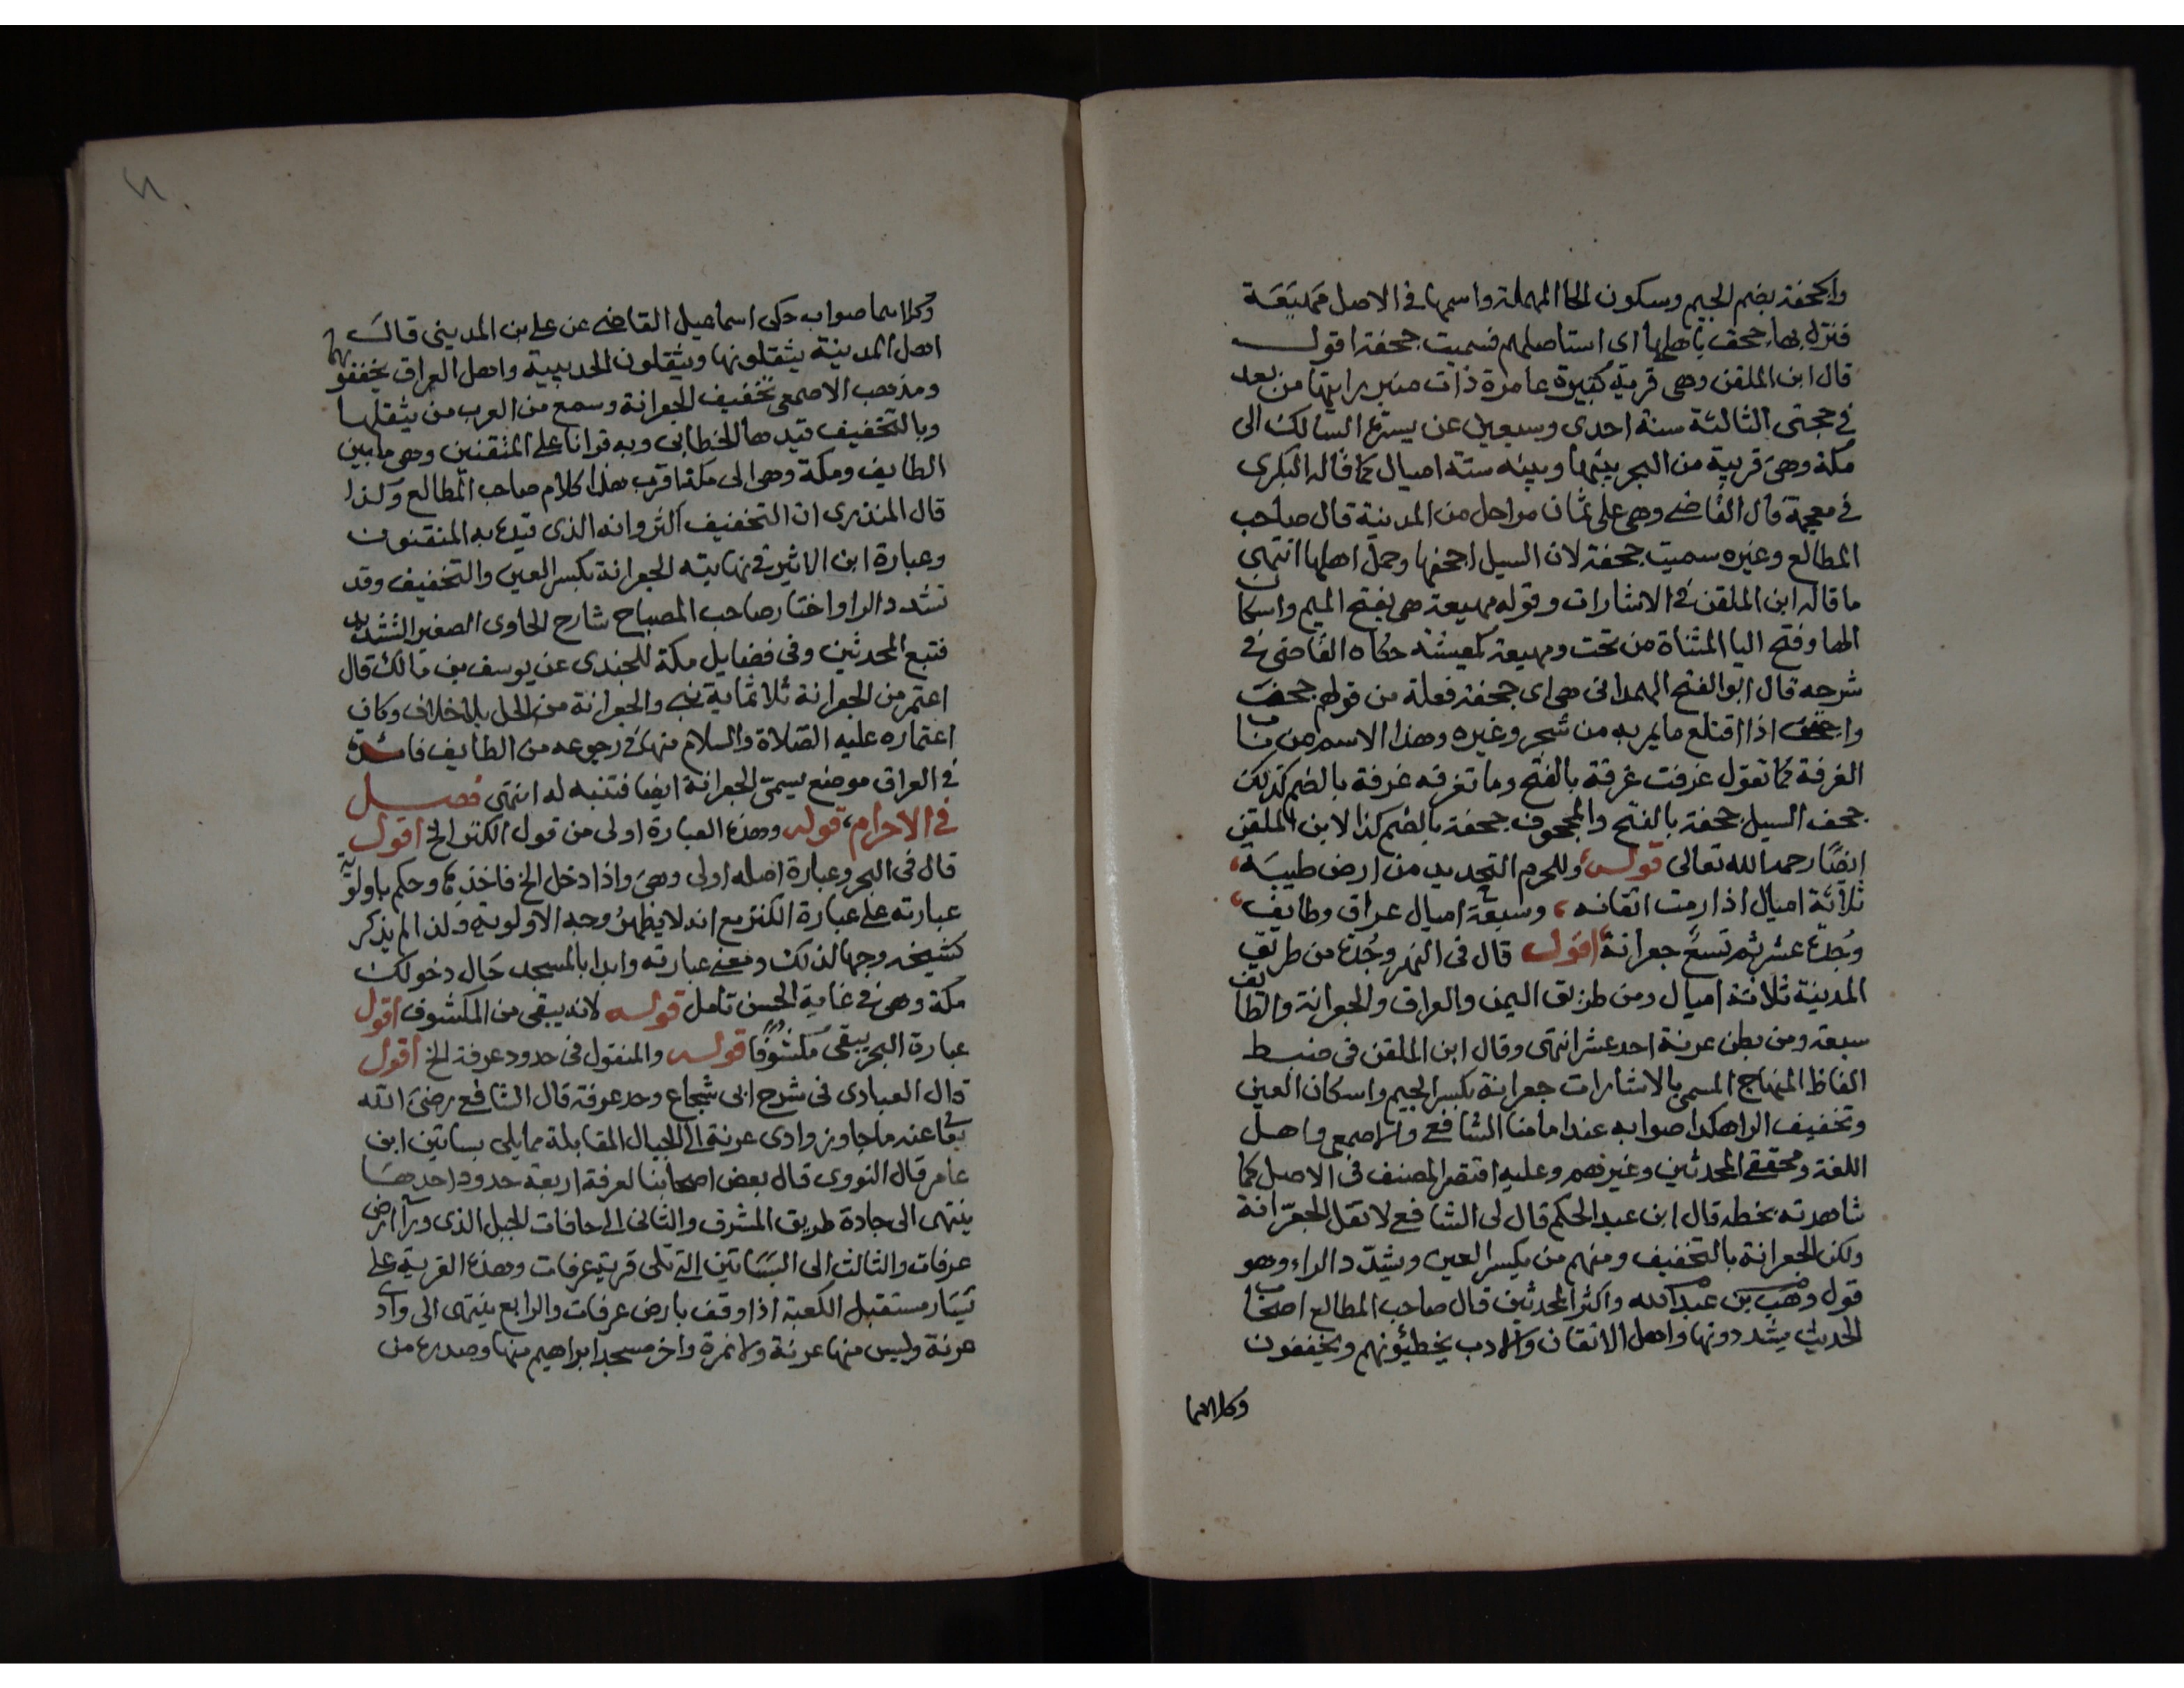 والجحفة بضم الجيم وسكون الحا المهملة واسمها في الاصل مهيعة
فنزل بها جحف باهلها اى استاصلهم فسميت جحفة اقول
قال ابن الملقن وهي قرية كبيرة عامرة ذات منبر رايتها من بعد
في حجتى الثالثة سنة احدى وسبعين عن يسرة السالك الى
مكة وهى قريبة من البحر بينها وبينه ستة اميال كما قاله البكرى
في معجمه قال القاضي وهي على ثمان مراحل من المدينة قال صاحب
المطالع وغيره سميت جحفة لان السيل اجحفها وحمل اهلها انتهى
ما قاله ابن الملقن في الاشارات وقوله مهيعة هى بفتح الميم واسكان
الها وفتح اليا المثناة من تحت ومهيعة كعيشة حكاه القاضى في
شرحه قال ابو الفتح الهمدانى هى اى جحفة فعلة من قولهم جحفت
واجحفت اذا اقتلع ما يمر به من شجر وغيره وهذا الاسم من باب
الغرفة كما تقول غرفت غرفة بالفتح وما تغرفه غرفة بالضم كذلك
جحف السيل جحفة بالفتح والمجحوف جحفة بالضم كذا لابن الملقن
ايضا رحمه الله تعالى قوله وللحرم التحديد من ارض طيبة،
ثلاثة اميال اذا رمت اتقانه، وسبعة اميال عراق وطايف،
وجدة عشر ثم تسع جعرانة اقول قال في النهر وجدة من طريق
المدينة ثلاثة اميال ومن طريق اليمن والعراق والجعرانة والطايف
سبعة ومن بطن عرنة احد عشر انتهى وقال ابن الملقن في ضبط
الفاظ المنهاج المسمى بالاشارات جعرانة بكسر الجيم واسكان العين
وتخفيف الرا هكذا صوابه عند امامنا الشافعي والاصمعي واهل
اللغة ومحققي المحدثين وغيرهم وعليه اقتصر المصنف في الاصل كما
شاهدته بخطه قال ابن عبد الحكم قال لى الشافعي لا تقل الجعرّانة
ولكن الجعرانة بالتخفيف ومنهم من يكسر العين ويشدد الراء وهو
قول وهب بن عبد الله واكثر المحدثين قال صاحب المطالع اصحاب
الحديث يشددونها واهل الاتقان والادب يخطئونهم ويخففون
وكلاهما
وكلاهما صواب حكى اسماعيل القاضي عن على بن المدينى قال
اهل المدينة يثقلونها ويثقلون الحديبية واهل العراق يخففونهما
ومذهب الاصمعي تخفيف الجعرانة وسمع من العرب من يثقلها
وبالتخفيف قيدها الخطابى وبه قرانا على المتقنين وهي ما بين
الطايف ومكة وهي الى مكة اقرب هذا كلام صاحب المطالع وكذا
قال المنذرى ان التخفيف اكثر وانه الذى قيده به المتقنون
وعبارة ابن الاثير في نهايته الجعرانة بكسر العين والتخفيف وقد
تشدد الرا واختار صاحب المصباح شارح الحاوى الصغير التشديد
فتبع المحدثين وفى فضايل مكة للجندى عن يوسف بن مالك قال
اعتمر من الجعرانة ثلاثماية نبى والجعرانة من الحل بلا خلاف وكان
اعتماره عليه الصلاة والسلام منها في رجوعه من الطايف فائدة
في العراق موضع يسمى الجعرانة ايضا فتنبه له انتهى فصل
في الاحرام، قوله وهذه العبارة اولى من قول الكنز الخ اقول
قال فى البحر وعبارة اصله اولى وهى واذا دخل الخ فاخذ بها وحكم باولوية
عبارته على عبارة الكنز مع انه لا يظهر وجه الاولوية ولذا لم يذكر
كشيخه وجها لذلك ومعنى عبارته وابدا بالمسجد حال دخولك
مكة وهى في غاية الحسن تامل قوله لانه يبقى من المكشوف اقول
عبارة البحر يبقى مكشوفا قوله والمنقول في حدود عرفة الخ اقول
قال العبادى فى شرح ابى شجاع وحد عرفة قال الشافعي رضى الله
تعالى عنه ما جاوز وادى عرنة الى الجبال المقابلة مما يلى بساتين ابن
عامر قال النووى قال بعض اصحابنا لعرفة اربعة حدود احدها
ينتهى الى جادة طريق المشرق والثانى الى حافات الجبل الذى وراء ارض
عرفات والثالث الى البساتين التي تلى قرية عرفات وهذه القرية على
يسار مستقبل الكعبة اذا وقف بارض عرفات والرابع ينتهى الى وادى
عرنة وليس منها عرنة ولا نمرة واخر مسجد ابراهيم منها وصدره من